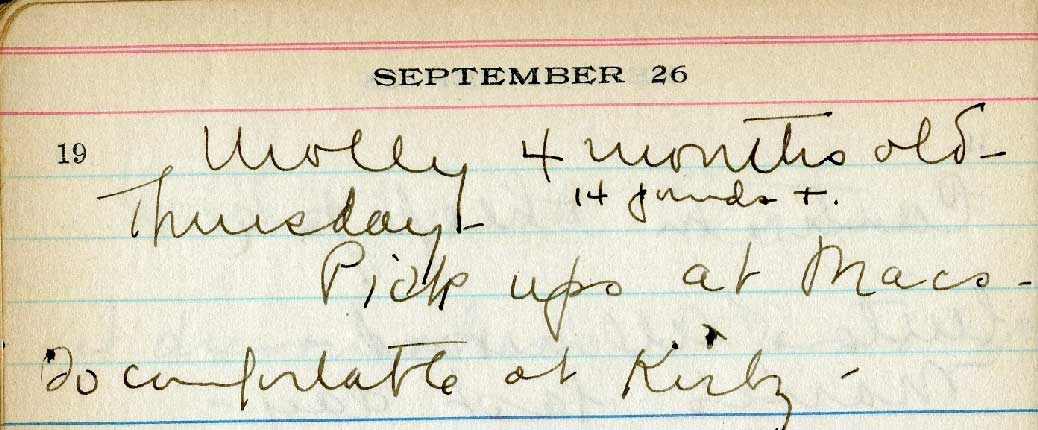 SEPTEMBER 26
19 Molly 4 months old -
14 pounds +.
Thursday -
Pick ups at Macs -
So comfortable at Kirby -